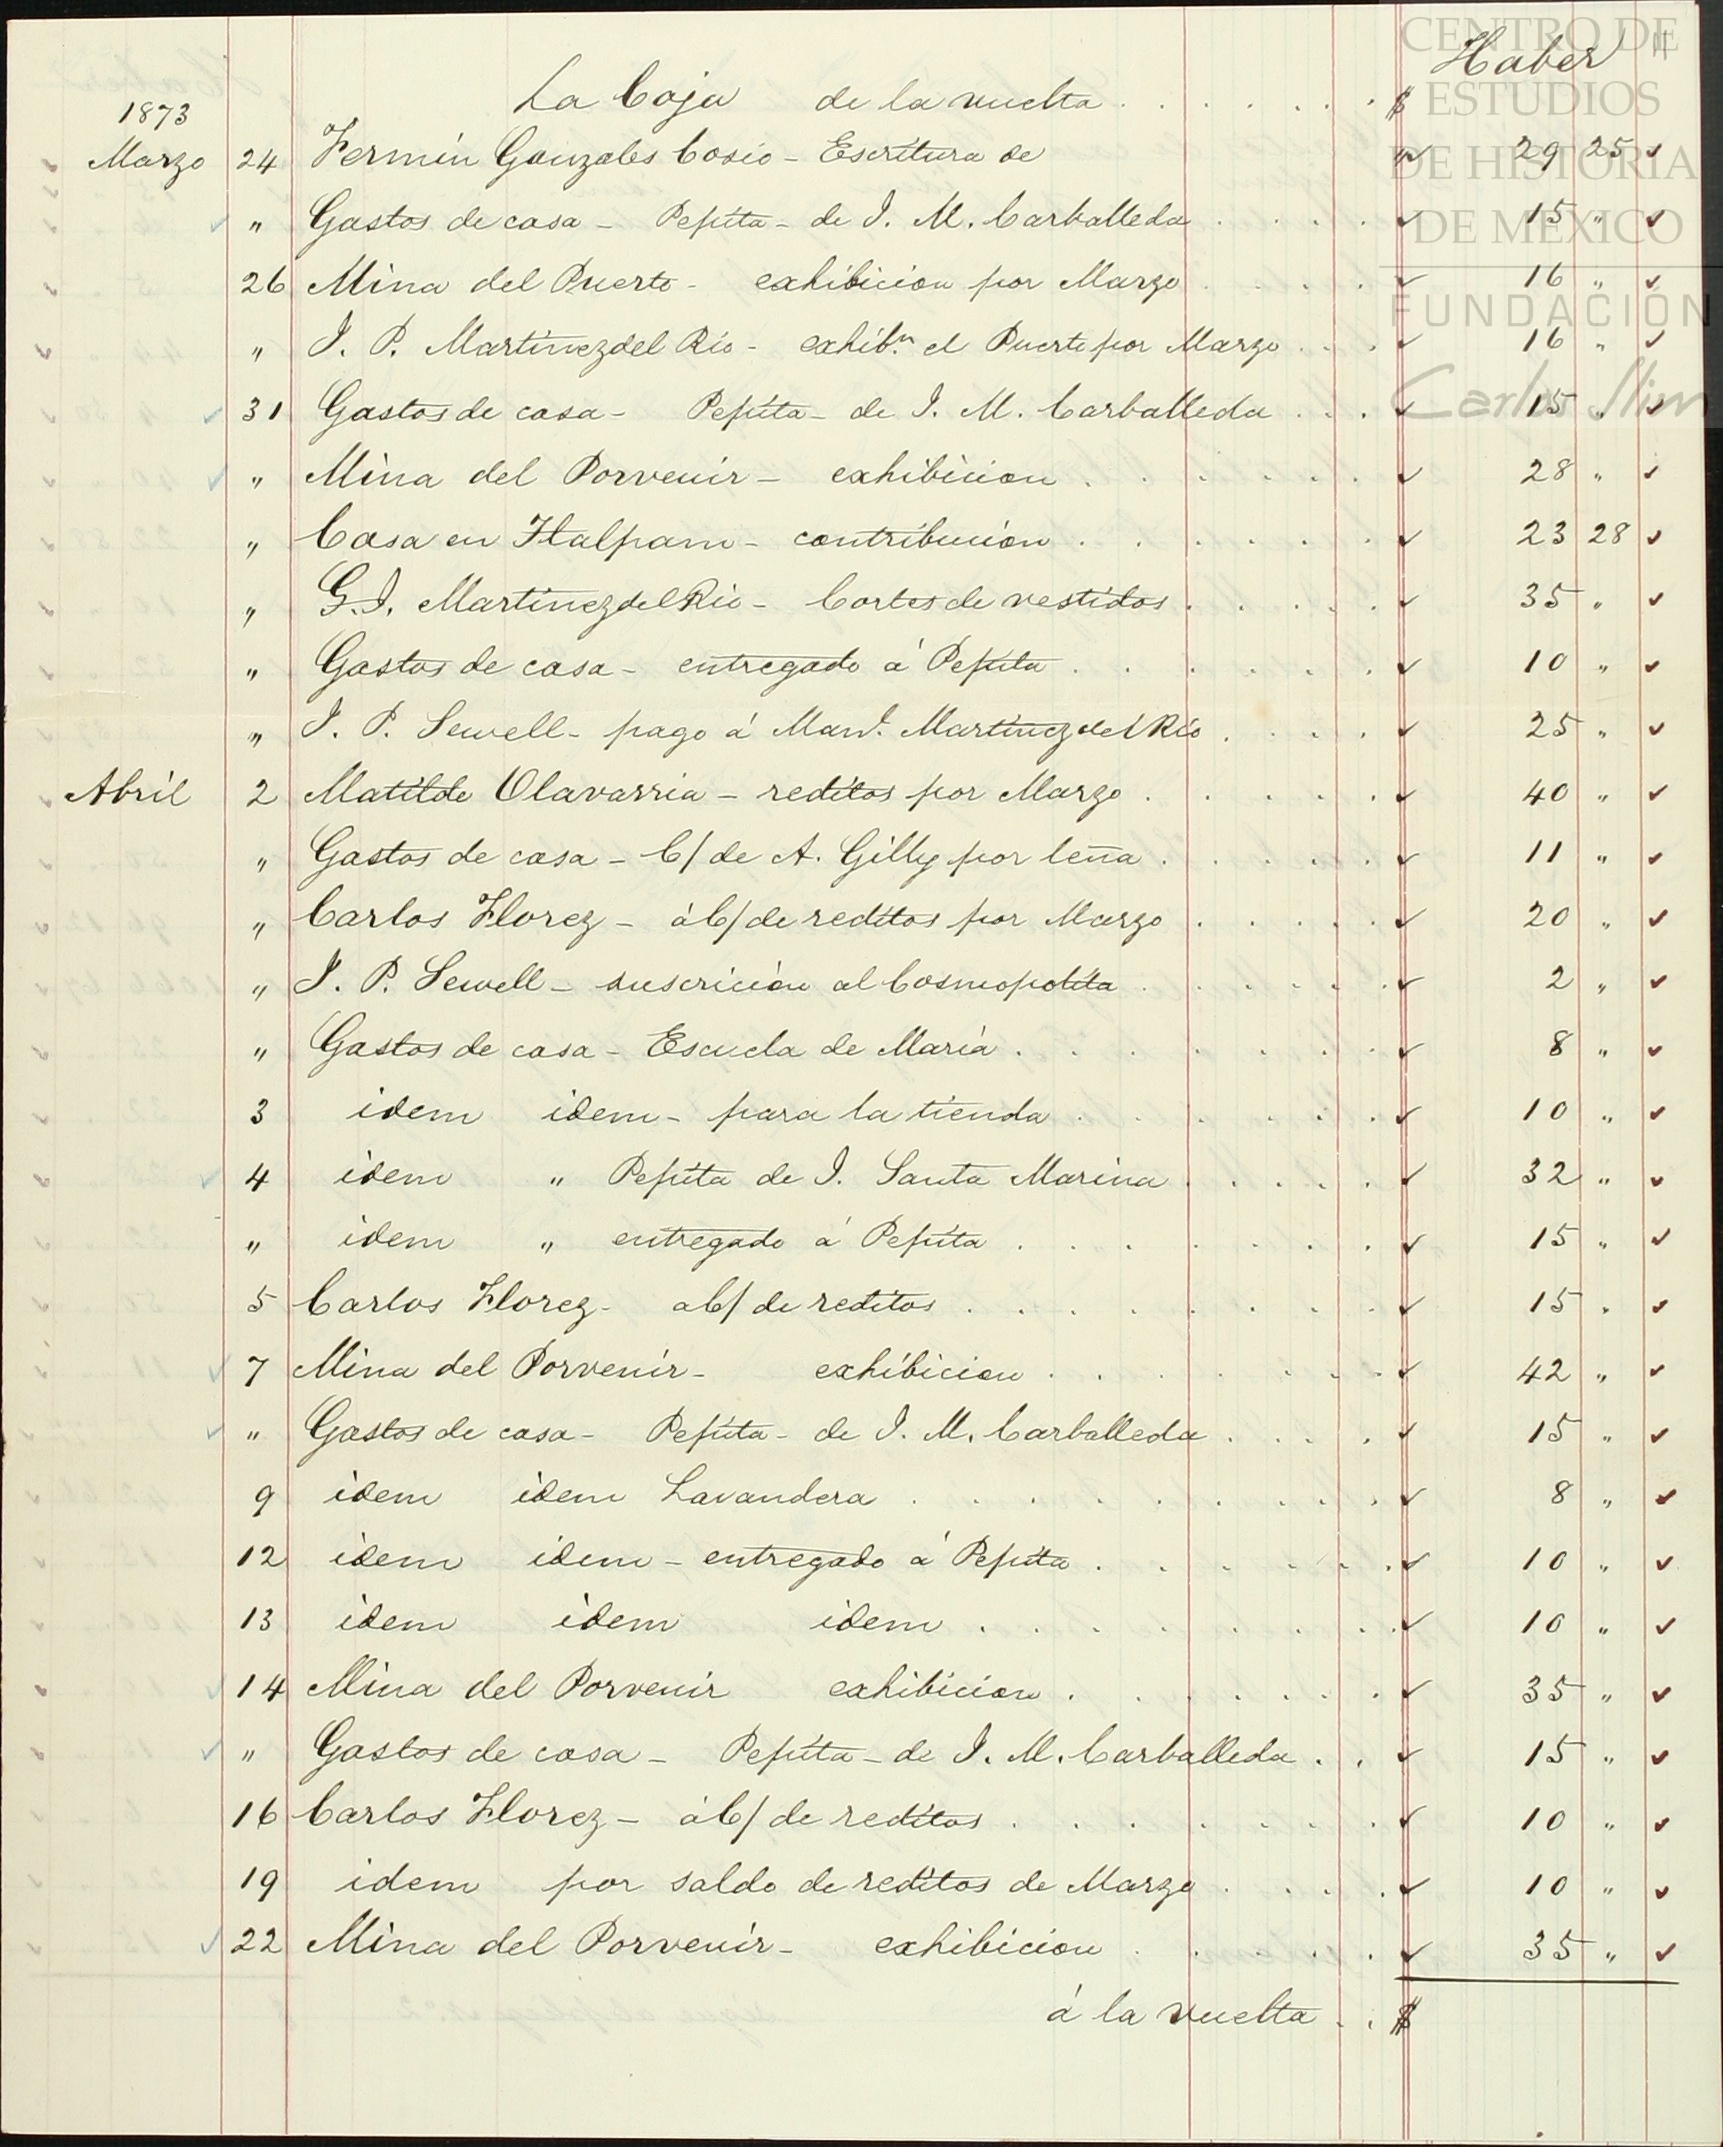 CENTRO DE
ESTUDIOS
DE HISTORIA
DE MÉXICO
FUNDACIÓN
Carlos Slim
Haber
La Caja de la vuelta . . . . . . $
1873
Marzo 24 Fermín Gonzales Cosio - Escritura de " 29 25
" Gastos de casa - Pepita - de J. M. Carballeda . . . . 15 "
26 Mina del Puerto - exhibicion por Marzo . . . . 16 "
" J. P. Martinez del Rio - exhib.n el Puerto por Marzo . . . 16 "
31 Gastos de casa - Pepita - de J. M. Carballeda . . . 15 "
" Mina del Porvenir - exhibicion . . . . . . 28 "
" Casa en Tlalpam - contribución . . . . . . 23 28
" G. J. Martinez del Rio - Cortes de vestidos . . . . . 35 "
" Gastos de casa - entregado á Pepita . . . . . . 10 "
" J. P. Sewell - pago á Man.l Martinez del Rio . . . . 25 "
Abril 2 Matilde Olavarria - reditos por Marzo . . . . . 40 "
" Gastos de casa - C/ de A. Gilly por leña . . . . . 11 "
" Carlos Florez - á C/ de reditos por Marzo . . . . . 20 "
" J. P. Sewell - suscrición al Cosmopolita . . . . . . 2 "
" Gastos de casa - Escuela de María . . . . . . . 8 "
3 idem idem - para la tienda . . . . . . 10 "
4 idem " Pepita de J. Santa Marina . . . . . 32 "
" idem " entregado á Pepita . . . . . . . 15 "
5 Carlos Florez - a C/ de reditos . . . . . . . . 15 "
7 Mina del Porvenir - exhibicion . . . . . . . 42 "
" Gastos de casa - Pepita - de J. M. Carballeda . . . . 15 "
9 idem idem Lavandera . . . . . . . . . 8 "
12 idem idem - entregado á Pepita . . . . . . 10 "
13 idem idem idem . . . . . . . . 10 "
14 Mina del Porvenir exhibicion . . . . . . . 35 "
" Gastos de casa - Pepita - de J. M. Carballeda . . 15 "
16 Carlos Florez - á C/ de reditos . . . . . . . 10 "
19 idem por saldo de reditos de Marzo . . . . 10 "
22 Mina del Porvenir - exhibicion . . . . . 35 "
á la vuelta . . $